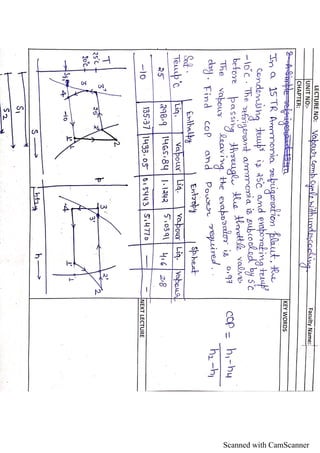 LECTURE NO:- Vapour Comp. Cycle with undercooling
Faculty Name:-
UNIT NO:-
CHAPTER:
KEY WORDS
In a 15 TR Ammonia refrigeration plant, the
condensing temp is 25°C and evaporating temp
-10°C. The refrigerant ammonia is subcooled by 5°C
before passing through the throttle valve.
The vapour leaving the evaporator is 0.97
dry. Find COP and Power required.
COP = h1-h4
h2-h1
Sat. Temp °C
Enthalpy
Entropy
Spheat
Liq. Vapour Liq. Vapour Liq. Vapour
25 298.9 1465.84 1.1242 5.0391 4.6 2.8
-10 135.37 1433.05 0.5443 5.4770 - -
NEXT LECTURE
T
25°C
20°C
3'
3
2'
2
4
1
1'
S
S1
S2
P
3'
3
2
4
1
1'
h
Scanned with CamScanner